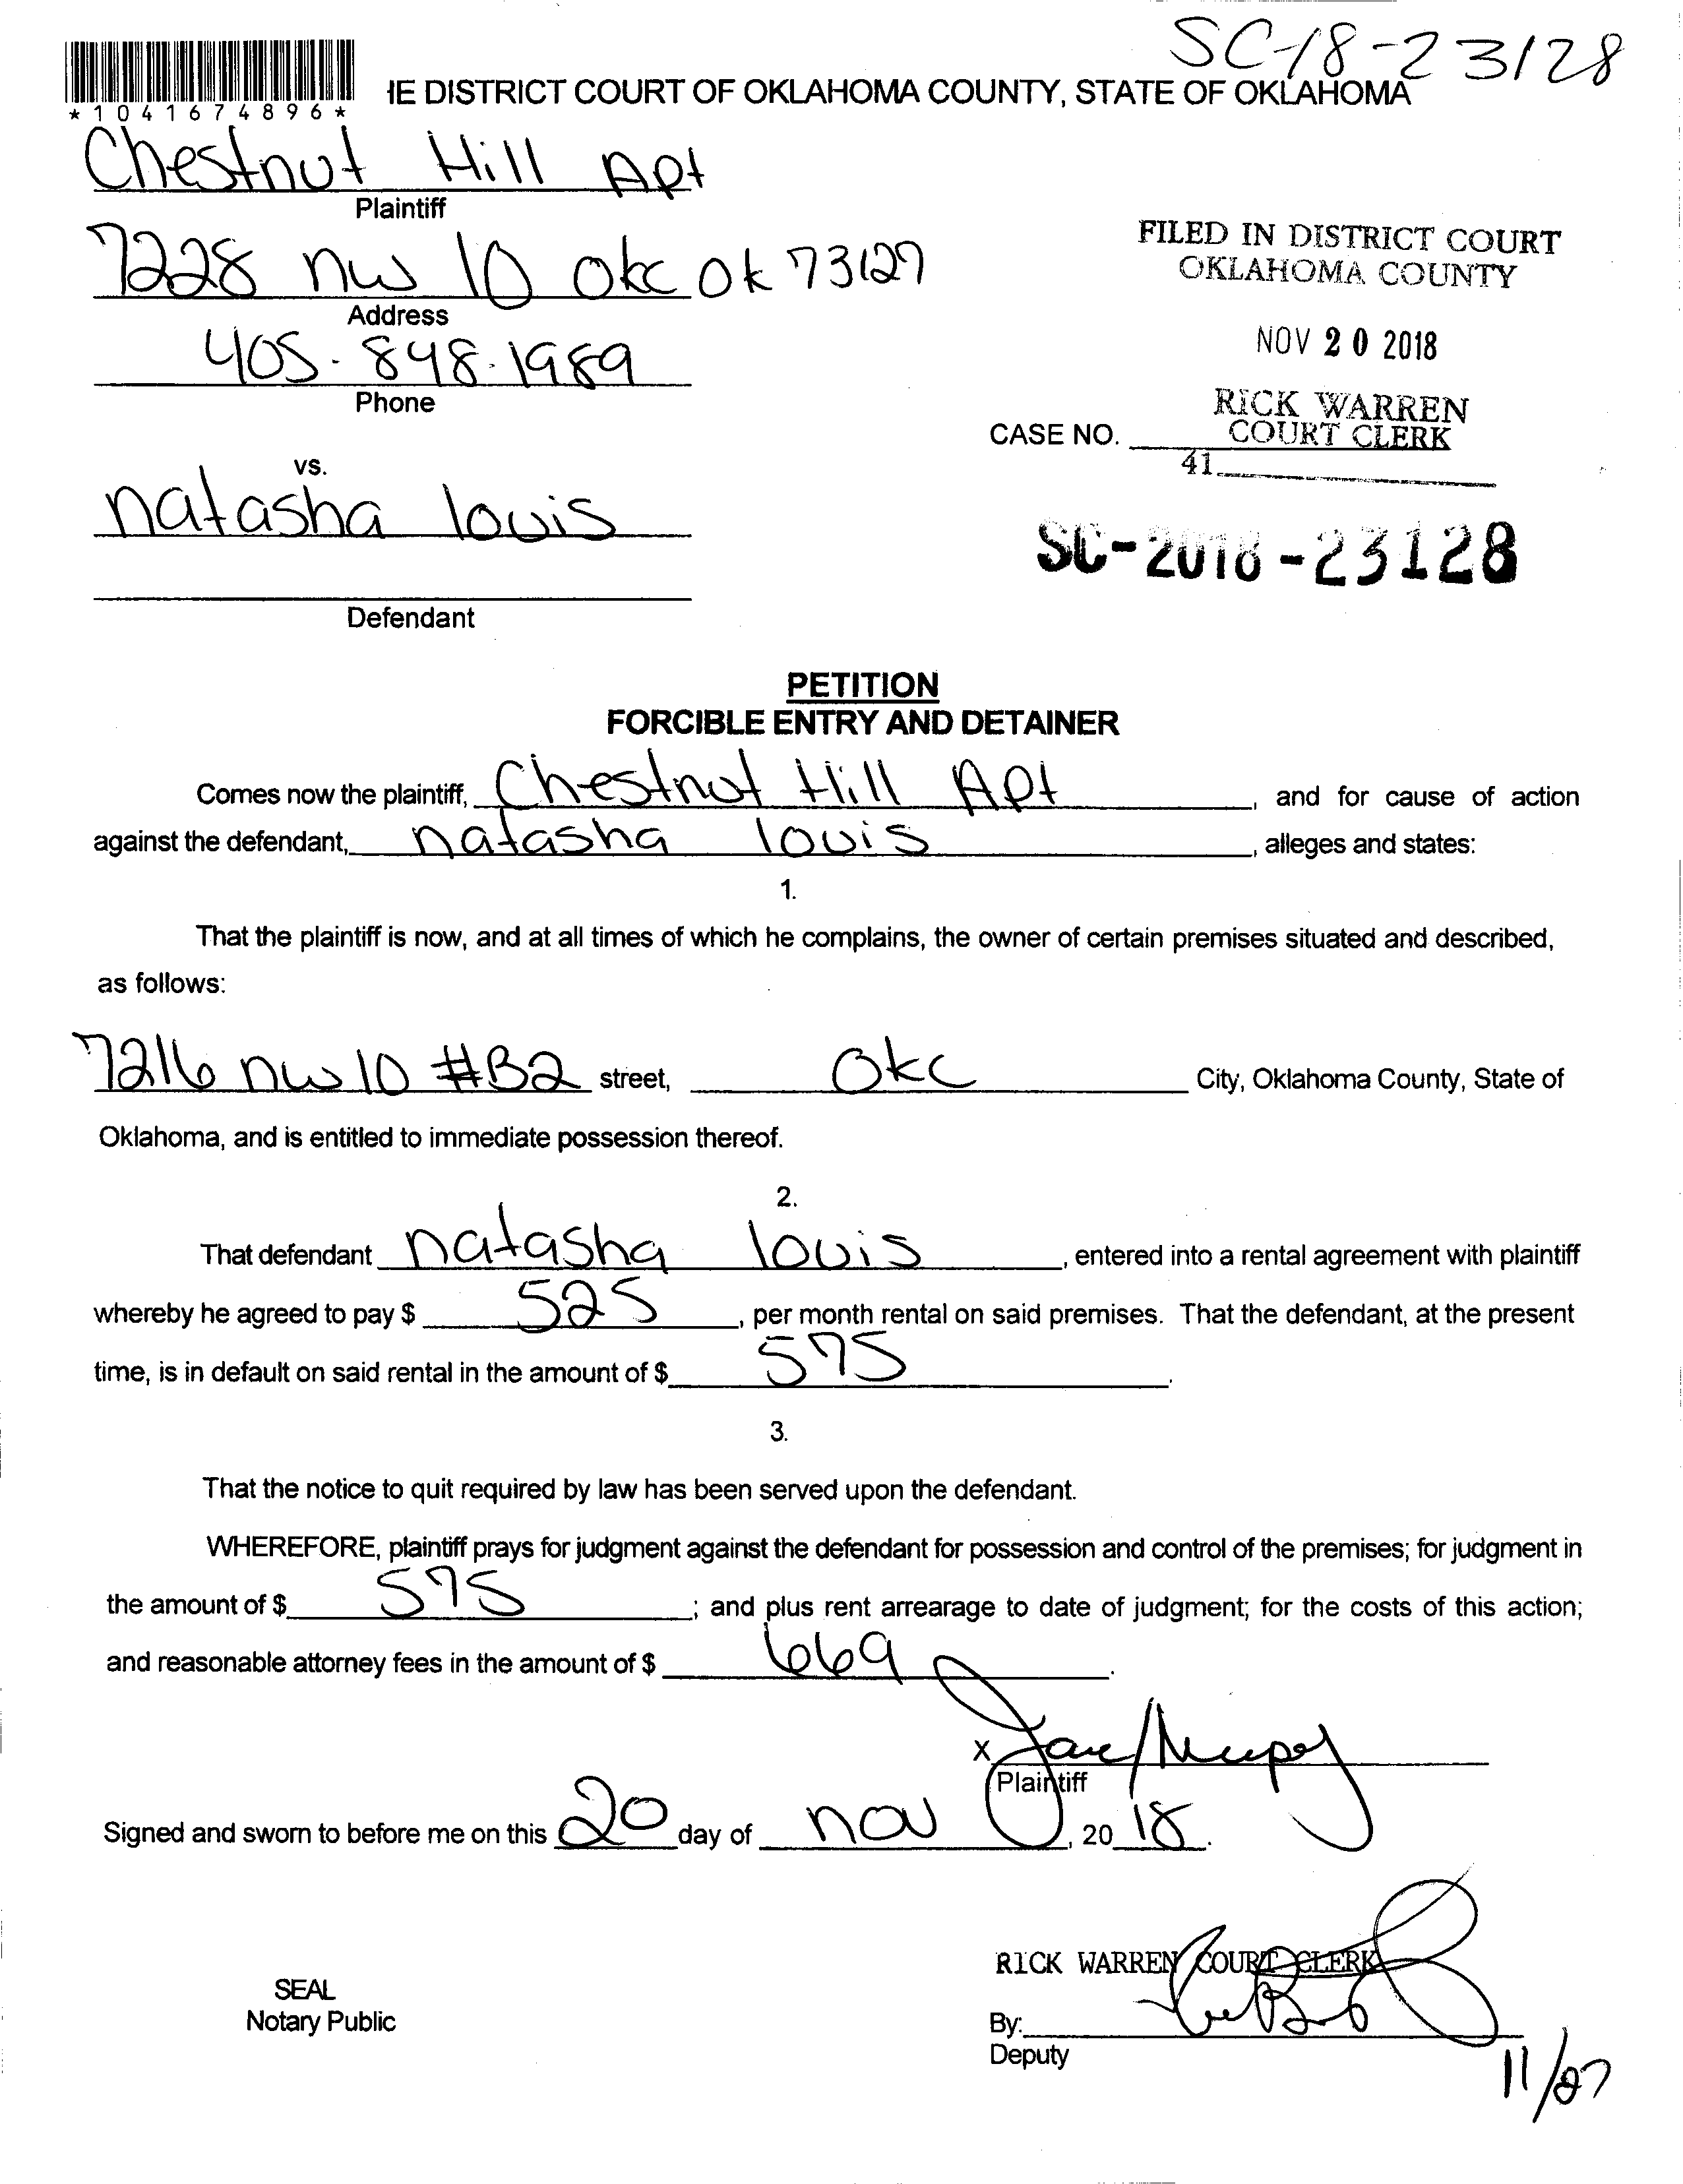 SC-18-23128
*1041674896*
IE DISTRICT COURT OF OKLAHOMA COUNTY, STATE OF OKLAHOMA
Chestnut Hill Apt
Plaintiff
7228 nw 10 okc ok 73127
Address
405-848-1989
Phone
FILED IN DISTRICT COURT
OKLAHOMA COUNTY
NOV 20 2018
RICK WARREN
COURT CLERK
CASE NO.
41
vs.
natasha louis
SC-2018-23128
Defendant
PETITION
FORCIBLE ENTRY AND DETAINER
Comes now the plaintiff, Chestnut Hill Apt, and for cause of action
against the defendant, natasha louis, alleges and states:
1.
That the plaintiff is now, and at all times of which he complains, the owner of certain premises situated and described,
as follows:
7216 nw 10 #B2 street, Okc City, Oklahoma County, State of
Oklahoma, and is entitled to immediate possession thereof.
2.
That defendant natasha louis, entered into a rental agreement with plaintiff
whereby he agreed to pay $ 525, per month rental on said premises. That the defendant, at the present
time, is in default on said rental in the amount of $ 575.
3.
That the notice to quit required by law has been served upon the defendant.
WHEREFORE, plaintiff prays for judgment against the defendant for possession and control of the premises; for judgment in
the amount of $ 575; and plus rent arrearage to date of judgment; for the costs of this action;
and reasonable attorney fees in the amount of $ 669.
X
Plaintiff
Signed and sworn to before me on this 20 day of nov, 20 18.
RICK WARREN COURT CLERK
SEAL
Notary Public
By:
Deputy
11/27